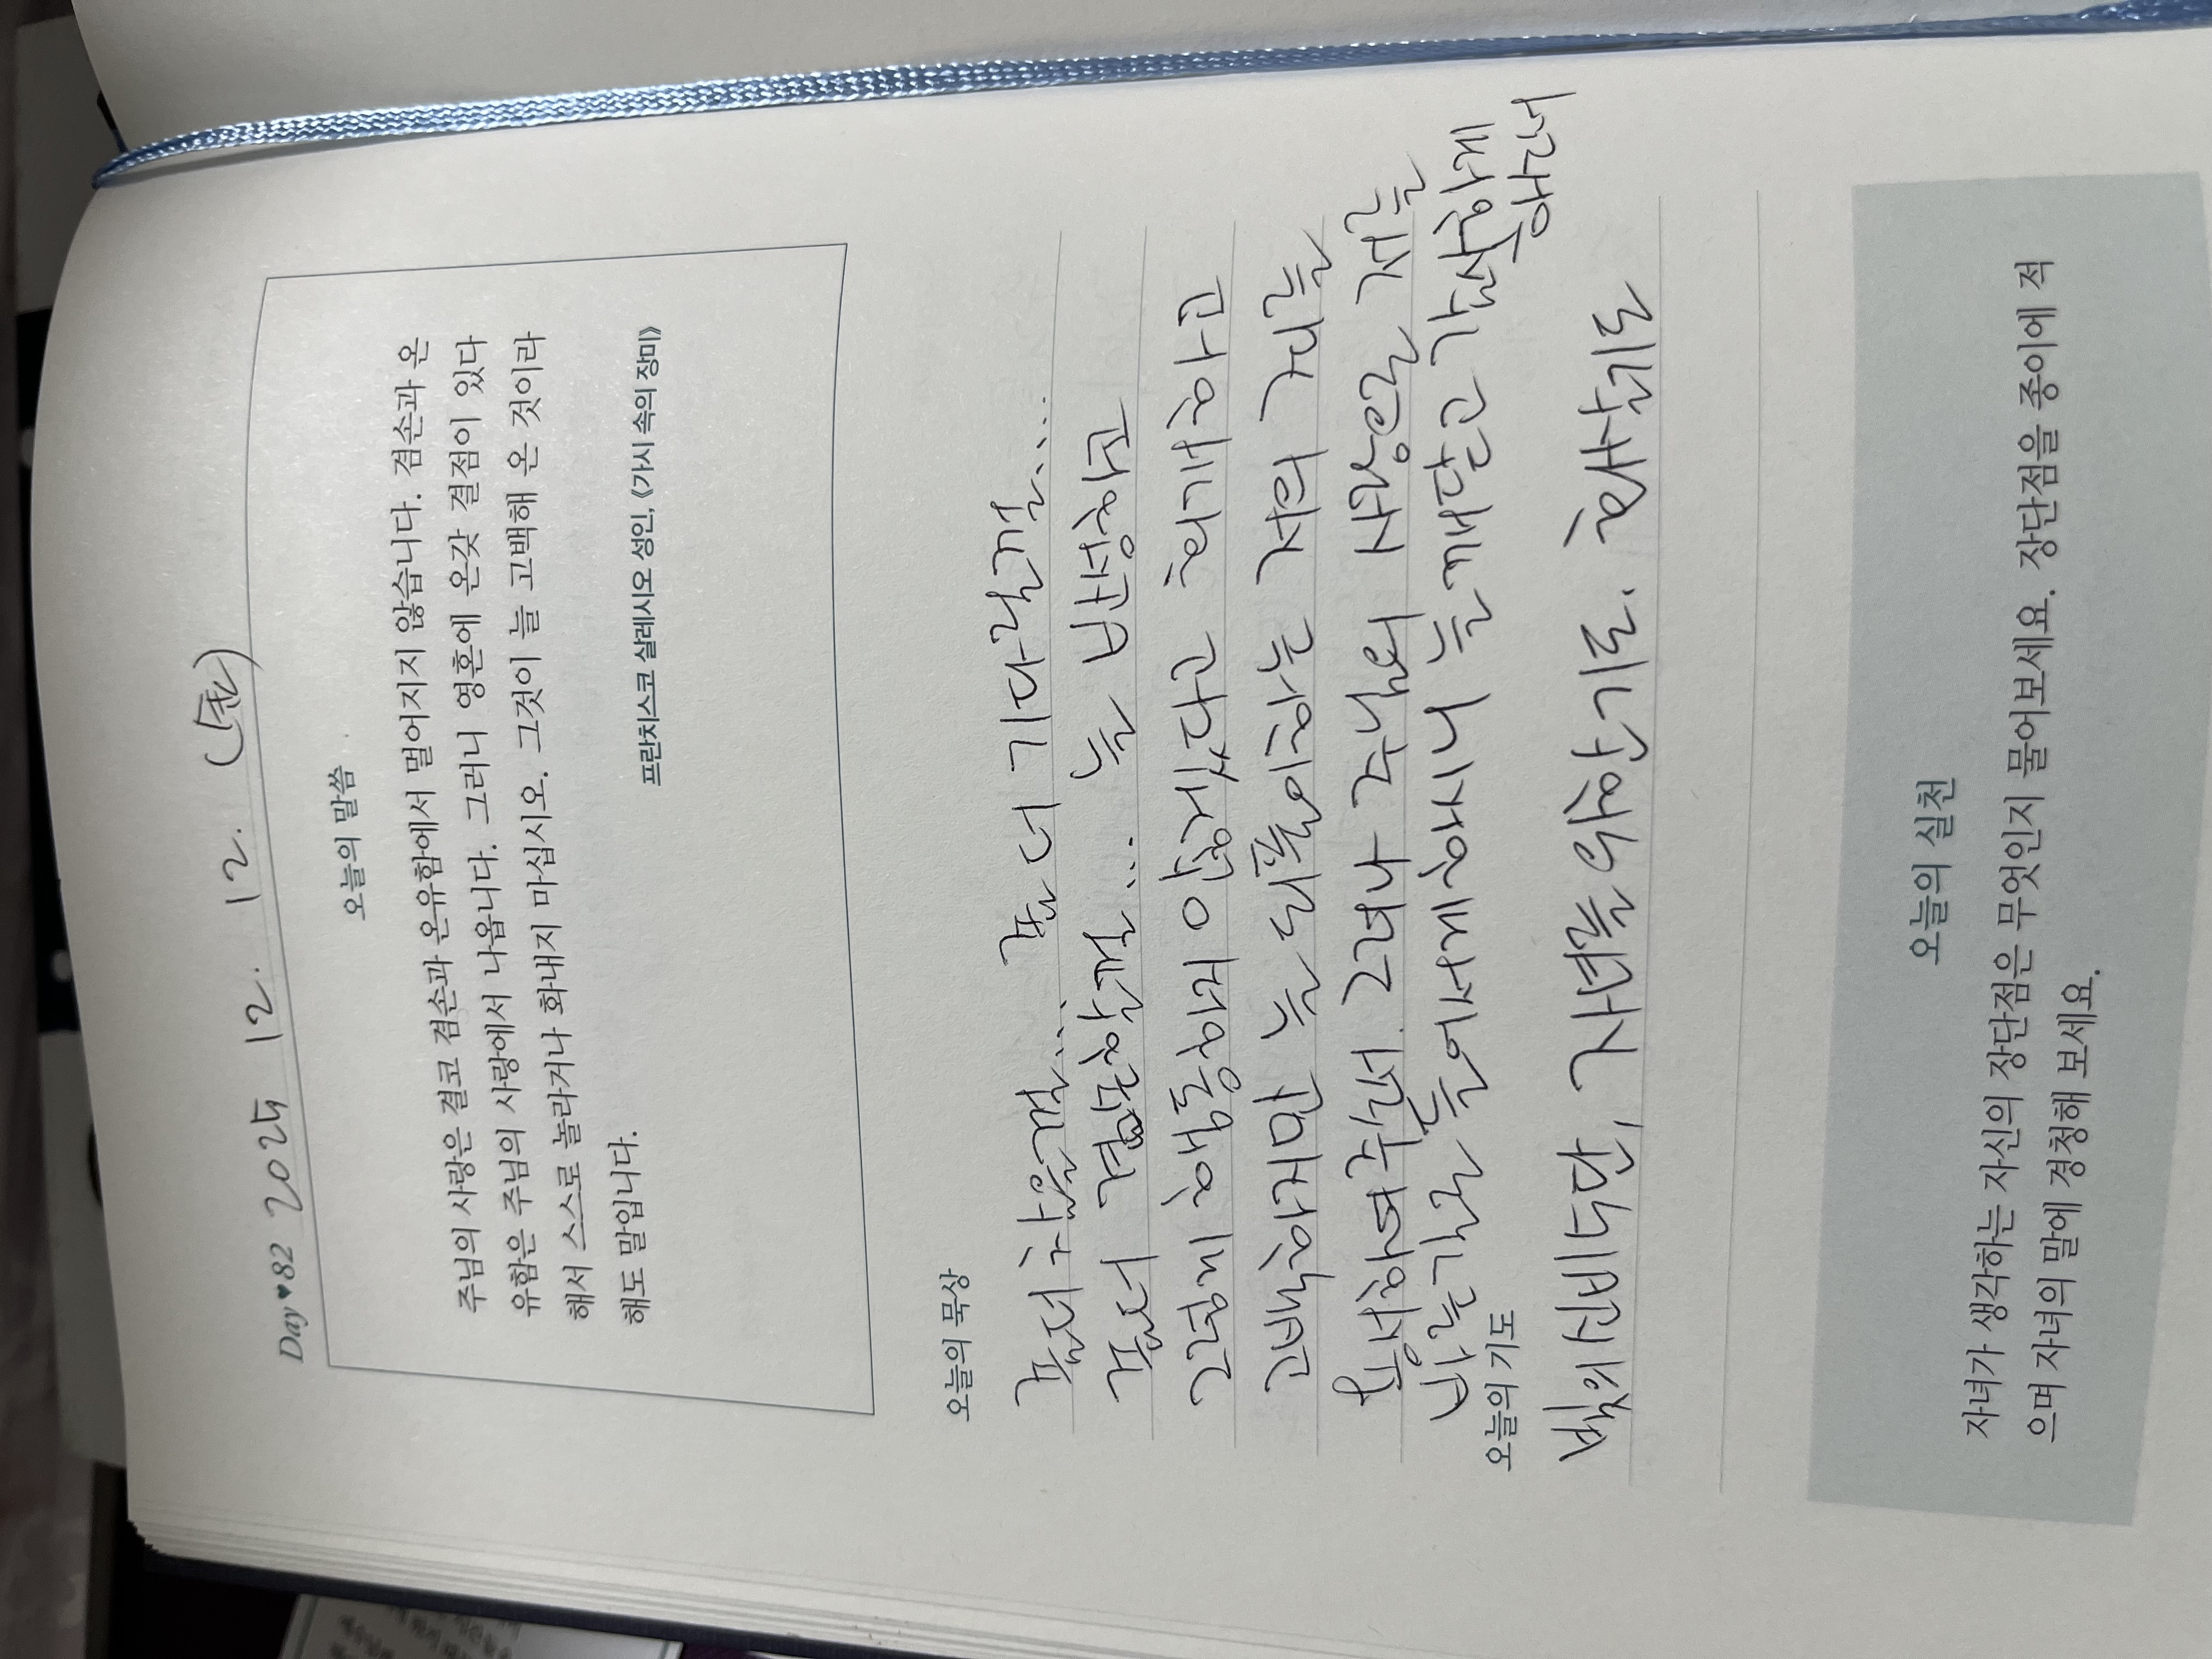 Day♥82 2025 12. 12. (金)
오늘의 말씀
주님의 사랑은 결코 겸손과 온유함에서 멀어지지 않습니다. 겸손과 온
유함은 주님의 사랑에서 나옵니다. 그러니 영혼에 온갖 결점이 있다
해서 스스로 놀라거나 화내지 마십시오. 그것이 늘 고백해 온 것이라
해도 말입니다.
프란치스코 살레시오 성인, 《가시 속의 장미》
오늘의 묵상
좀더 참을껄... 좀 더 기다릴껄...
좀더 겸손할껄... 늘 반성하고
그렇게 행동하지 않겠다고 회개하고
고백하지만 늘 되풀이하는 저의 죄를
용서하여주신 그녀나 주님의 사랑은 저를
바른길로 들어서게하시니 늘 깨닫고 감사하게
오늘의 기도
빛의 신비 5단, 자녀를 위한 기도. 화살기도
오늘의 실천
자녀가 생각하는 자신의 장단점은 무엇인지 물어보세요. 장단점을 종이에 적
으며 자녀의 말에 경청해 보세요.